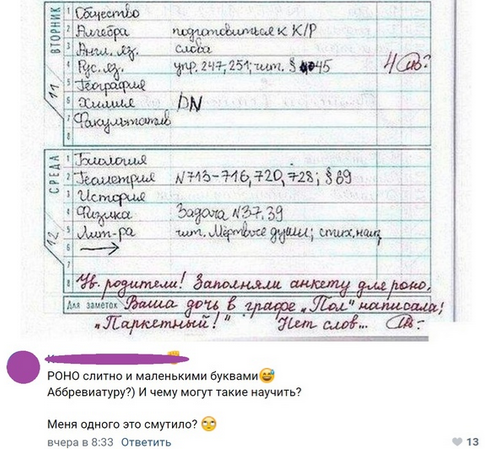 ВТОРНИК
11
1 Общество
2 Алгебра подготовиться к К/Р
3 Англ. яз. слова
4 Рус. яз. упр. 247, 251; чит. § 45 4
5 География
6 Химия
7 Факультатив
8
СРЕДА
12
1 Биология
2 Геометрия N713-716, 720, 728; § 89
3 История
4 Физика Задача N37, 39
5 Лит-ра чит. Мёртвые души; стих,
6
7
8 Ув. родители! Заполняли анкету для роно.
Для заметок Ваша дочь в графе „Пол" написала:
„Паркетный!" Нет слов...
РОНО слитно и маленькими буквами😅
Аббревиатуру?) И чему могут такие научить?
Меня одного это смутило? 🙄
вчера в 8:33 Ответить 13